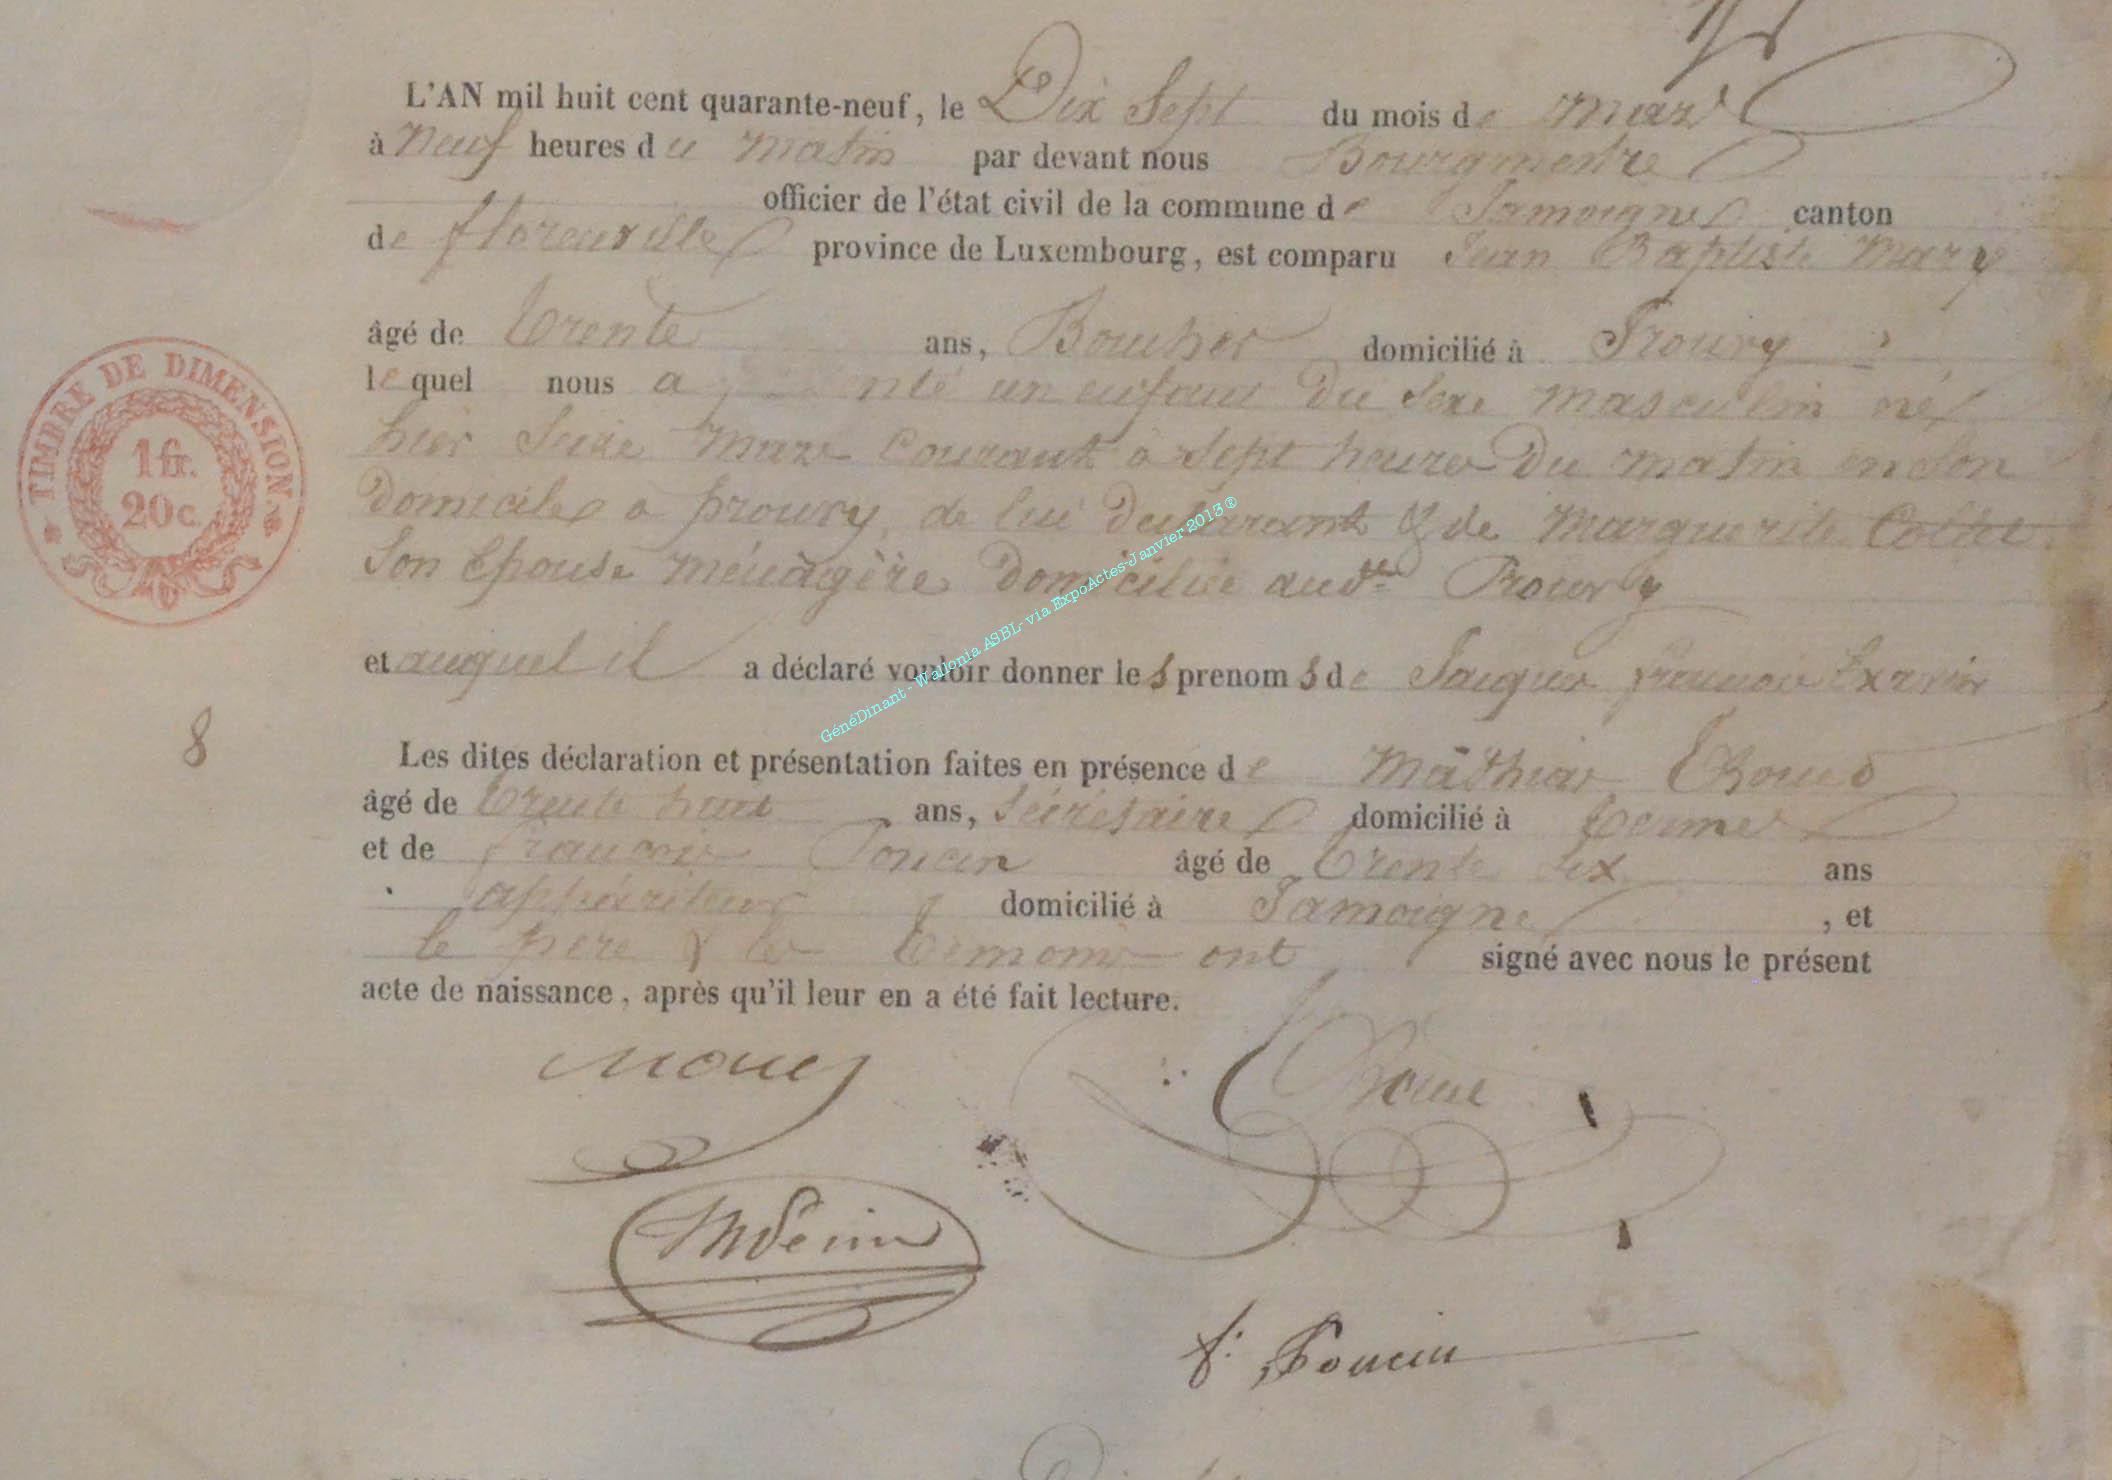 L'AN mil huit cent quarante-neuf, le Dix Sept du mois de mars
à neuf heures du matin par devant nous Bourgmestre
officier de l'état civil de la commune de Jamoigne canton
de florenville province de Luxembourg, est comparu Jean Baptiste Mary
âgé de trente ans, Boucher domicilié à Prouvy
lequel nous a présenté un enfant du sexe masculin né
hier seize mars courant à sept heures du matin en son
domicile à prouvy, de lui déclarant & de Marguerite Collet
son épouse ménagère domiciliée audt Prouvy
et auquel il a déclaré vouloir donner les prenoms de Jacques françois Exavier
Les dites déclaration et présentation faites en présence de Mathias
âgé de trente huit ans, sécrétaire domicilié à termes
et de françois Poncin âgé de trente six ans
appariteur domicilié à Jamoigne, et
le père & les témoins ont signé avec nous le présent
acte de naissance, après qu'il leur en a été fait lecture.
f: Poncin
TIMBRE DE DIMENSION.
1 fr.
20 c
8
GénéDinant - Wallonia ASBL- via ExpoActes-Janvier 2013 ®